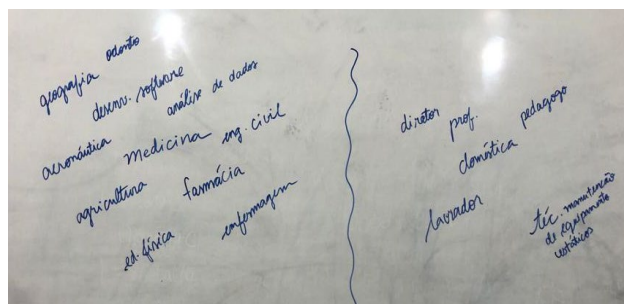 geografia odonto
desenv. software
análise de dados
aeronáutica medicina eng. civil
agricultura farmácia
ed. física enfermagem
diretor prof. pedagogo
doméstica
lavrador
téc. manutenção
de equipamento